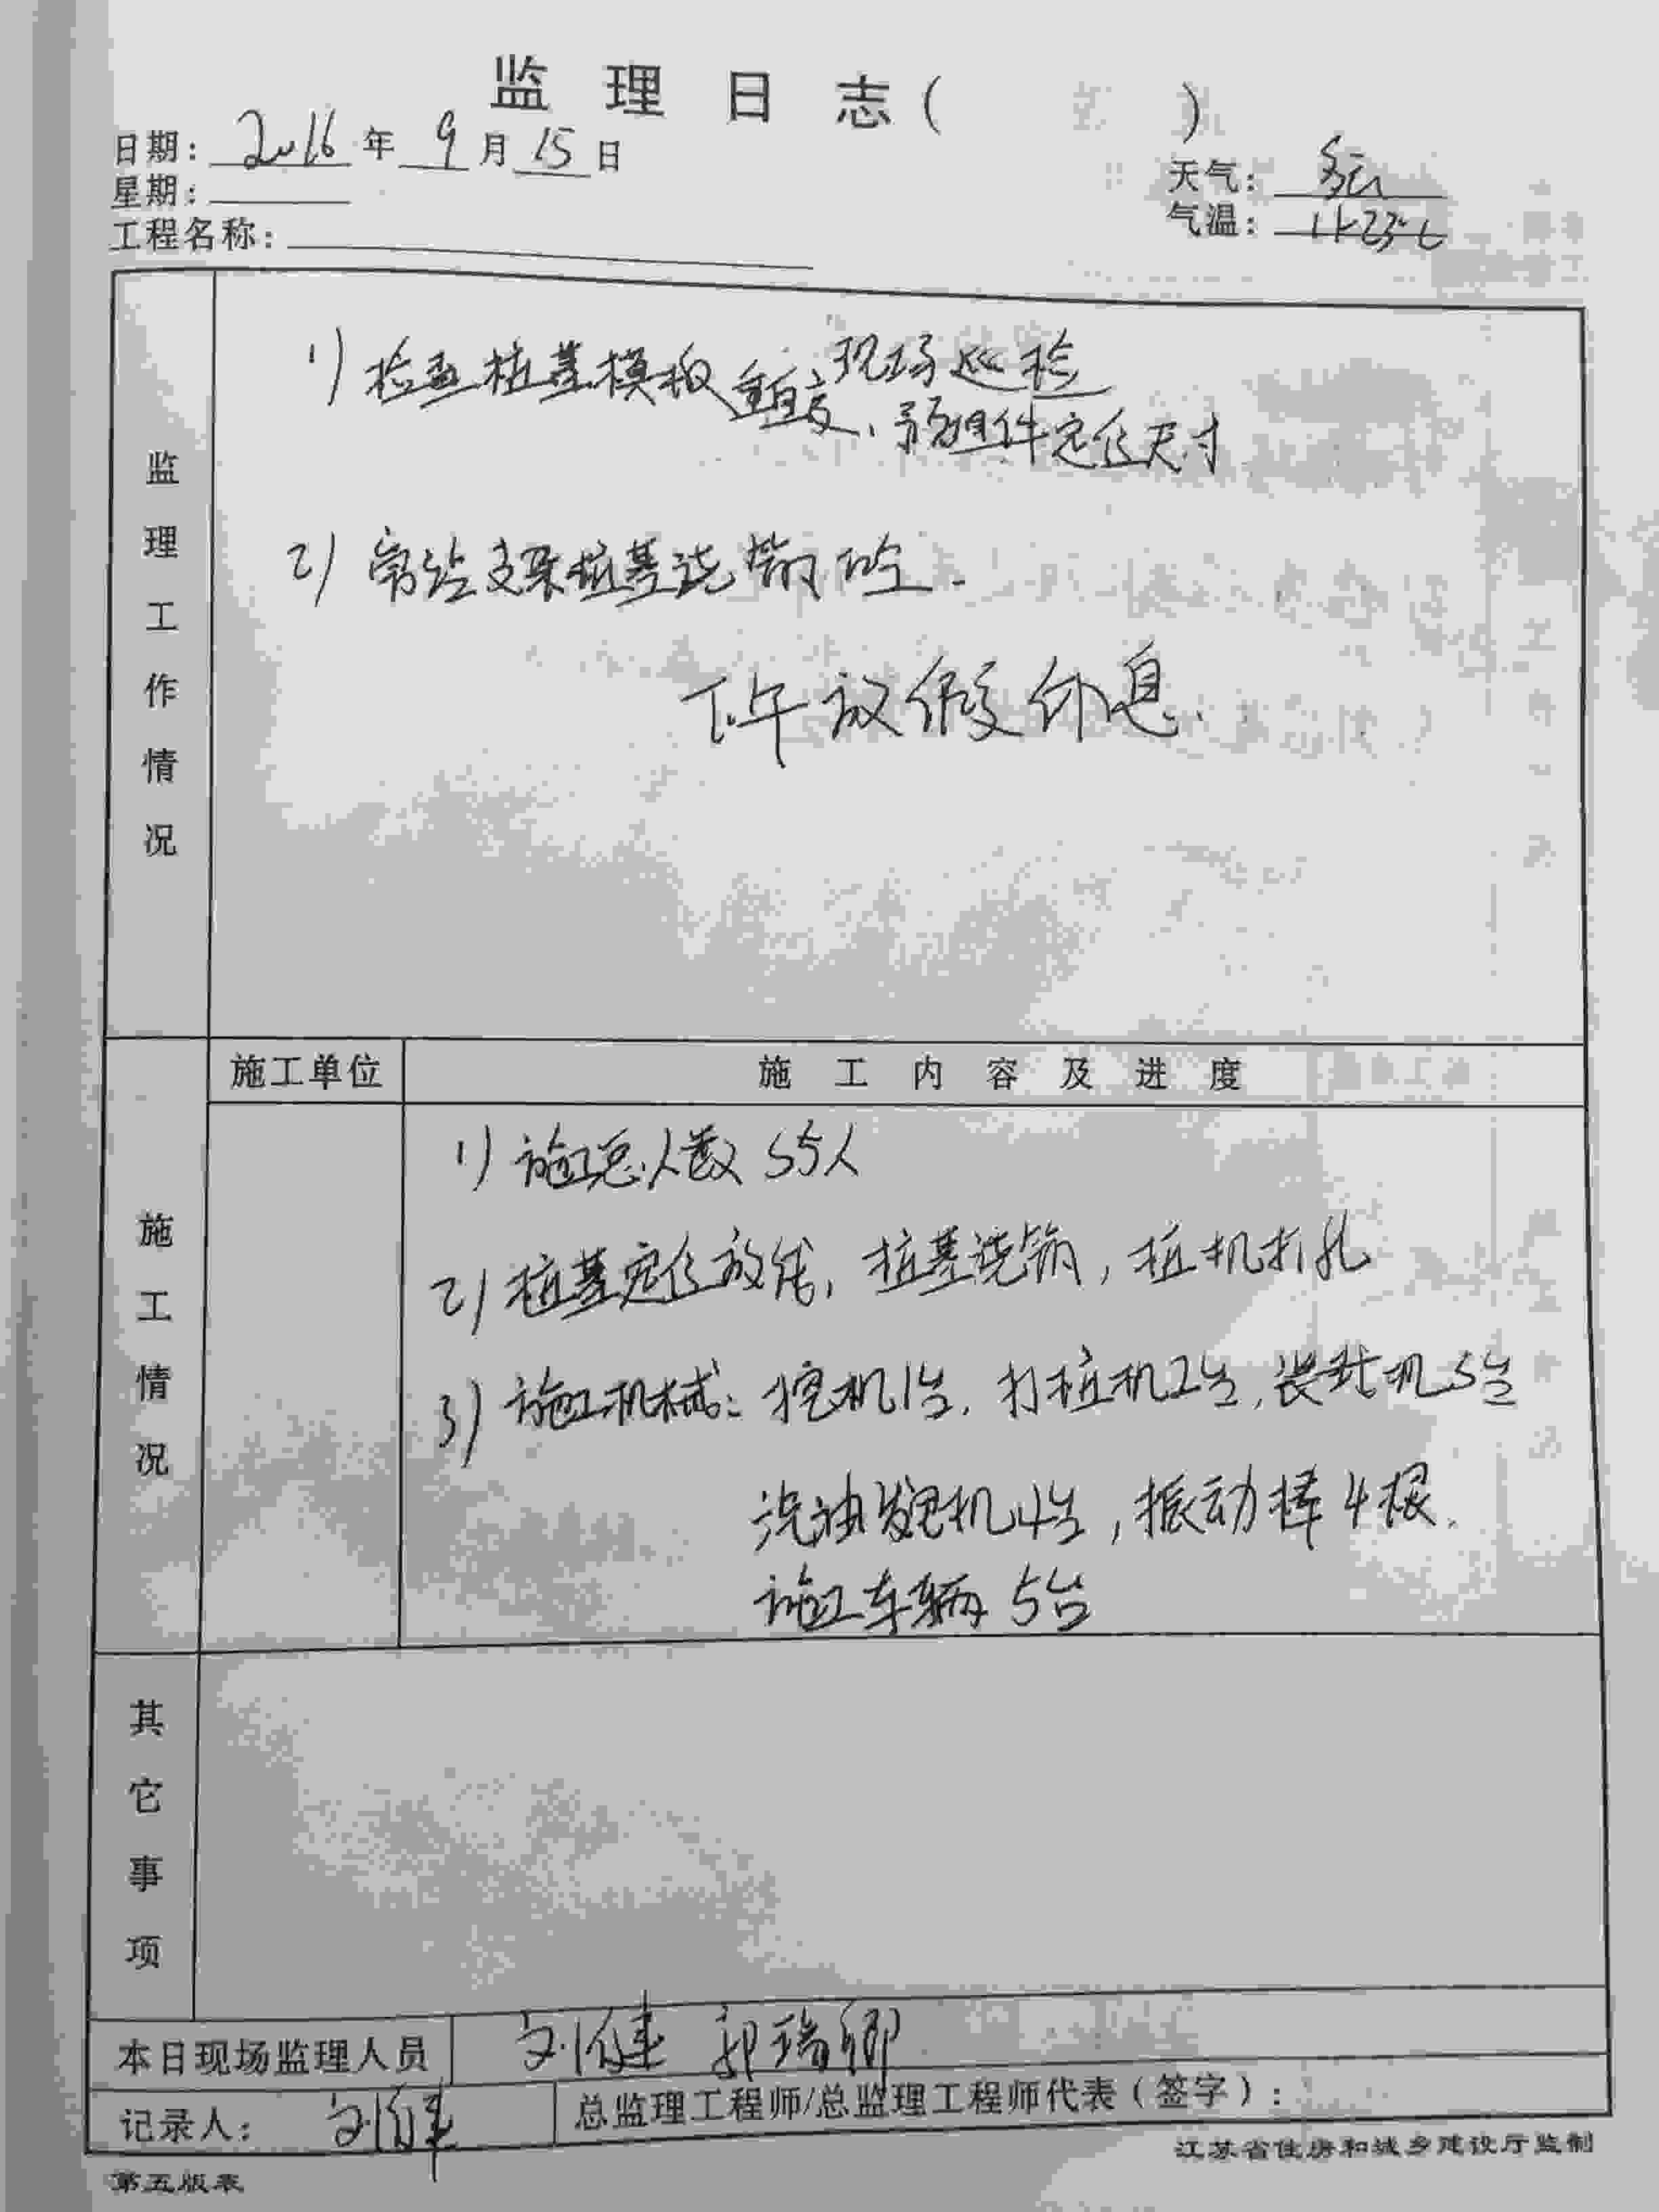 监理日志( )
日期: 2016 年 9 月 15 日
天气: 多云
星期:
气温:
工程名称:
监理工作情况
现场巡检
1) 检查桩基模板垂直度、预埋件定位尺寸
2) 旁站支架桩基浇筑砼.
下午放假休息.
施工单位 施工内容及进度
施工情况
1) 施工总人数 55人
2) 桩基定位放线, 桩基浇筑, 桩机打孔
3) 施工机械: 挖机1台, 打桩机2台, 装载机5台
汽油发电机4台, 振动棒4根.
施工车辆 5台
其它事项
本日现场监理人员 郭瑞卿
记录人: 总监理工程师/总监理工程师代表(签字):
江苏省住房和城乡建设厅监制
第五版表